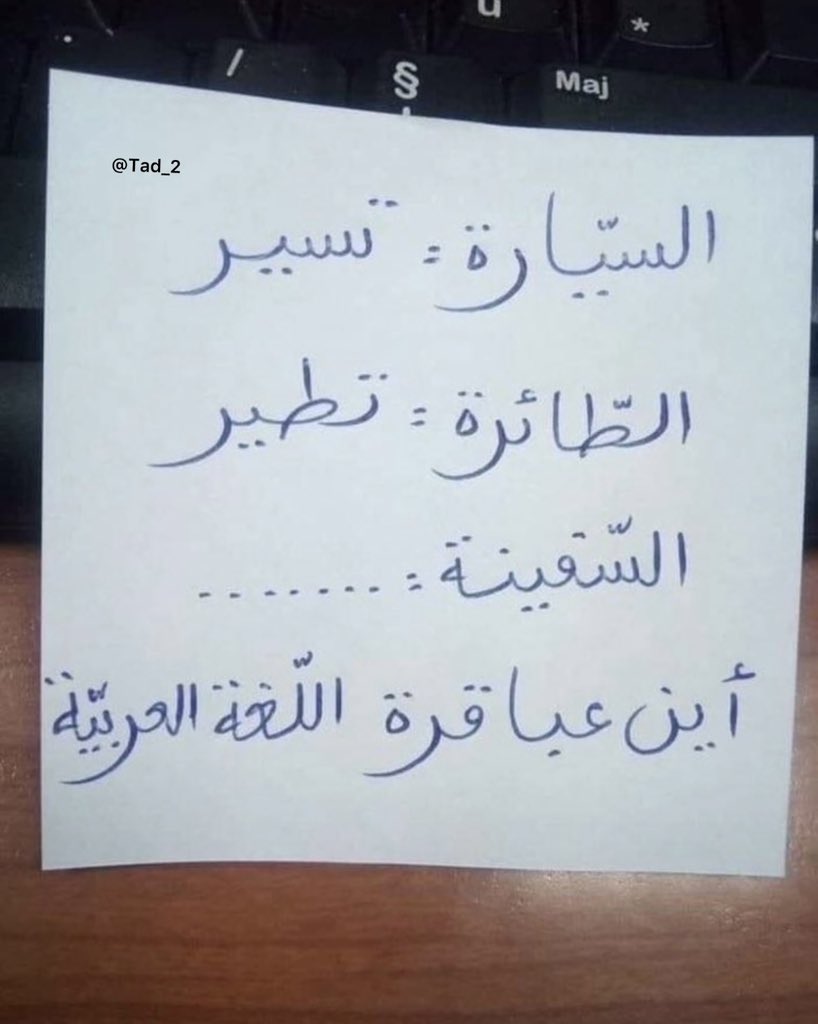 u
*
/
§
Maj
@Tad_2
السّيارة : تسير
الطّائرة : تطير
السّفينة : ........
أين عباقرة اللّغة العربيّة